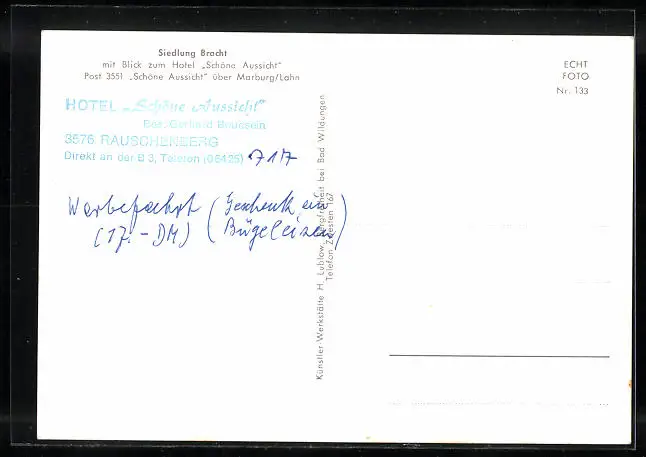 Siedlung Bracht
mit Blick zum Hotel „Schöne Aussicht"
Post 3551 „Schöne Aussicht" über Marburg/Lahn
ECHT
FOTO
Nr. 133
HOTEL „Schöne Aussicht"
Bes. Gerhard
3576 RAUSCHENBERG
Direkt an der B 3, Telefon (06425) 717
Werbefahrt (Geschenk ein
(17.- DM) (Bügeleisen)
Künstler-Werkstätte H. Lublow, Bergfreiheit bei Bad Wildungen
Telefon Zwesten 167